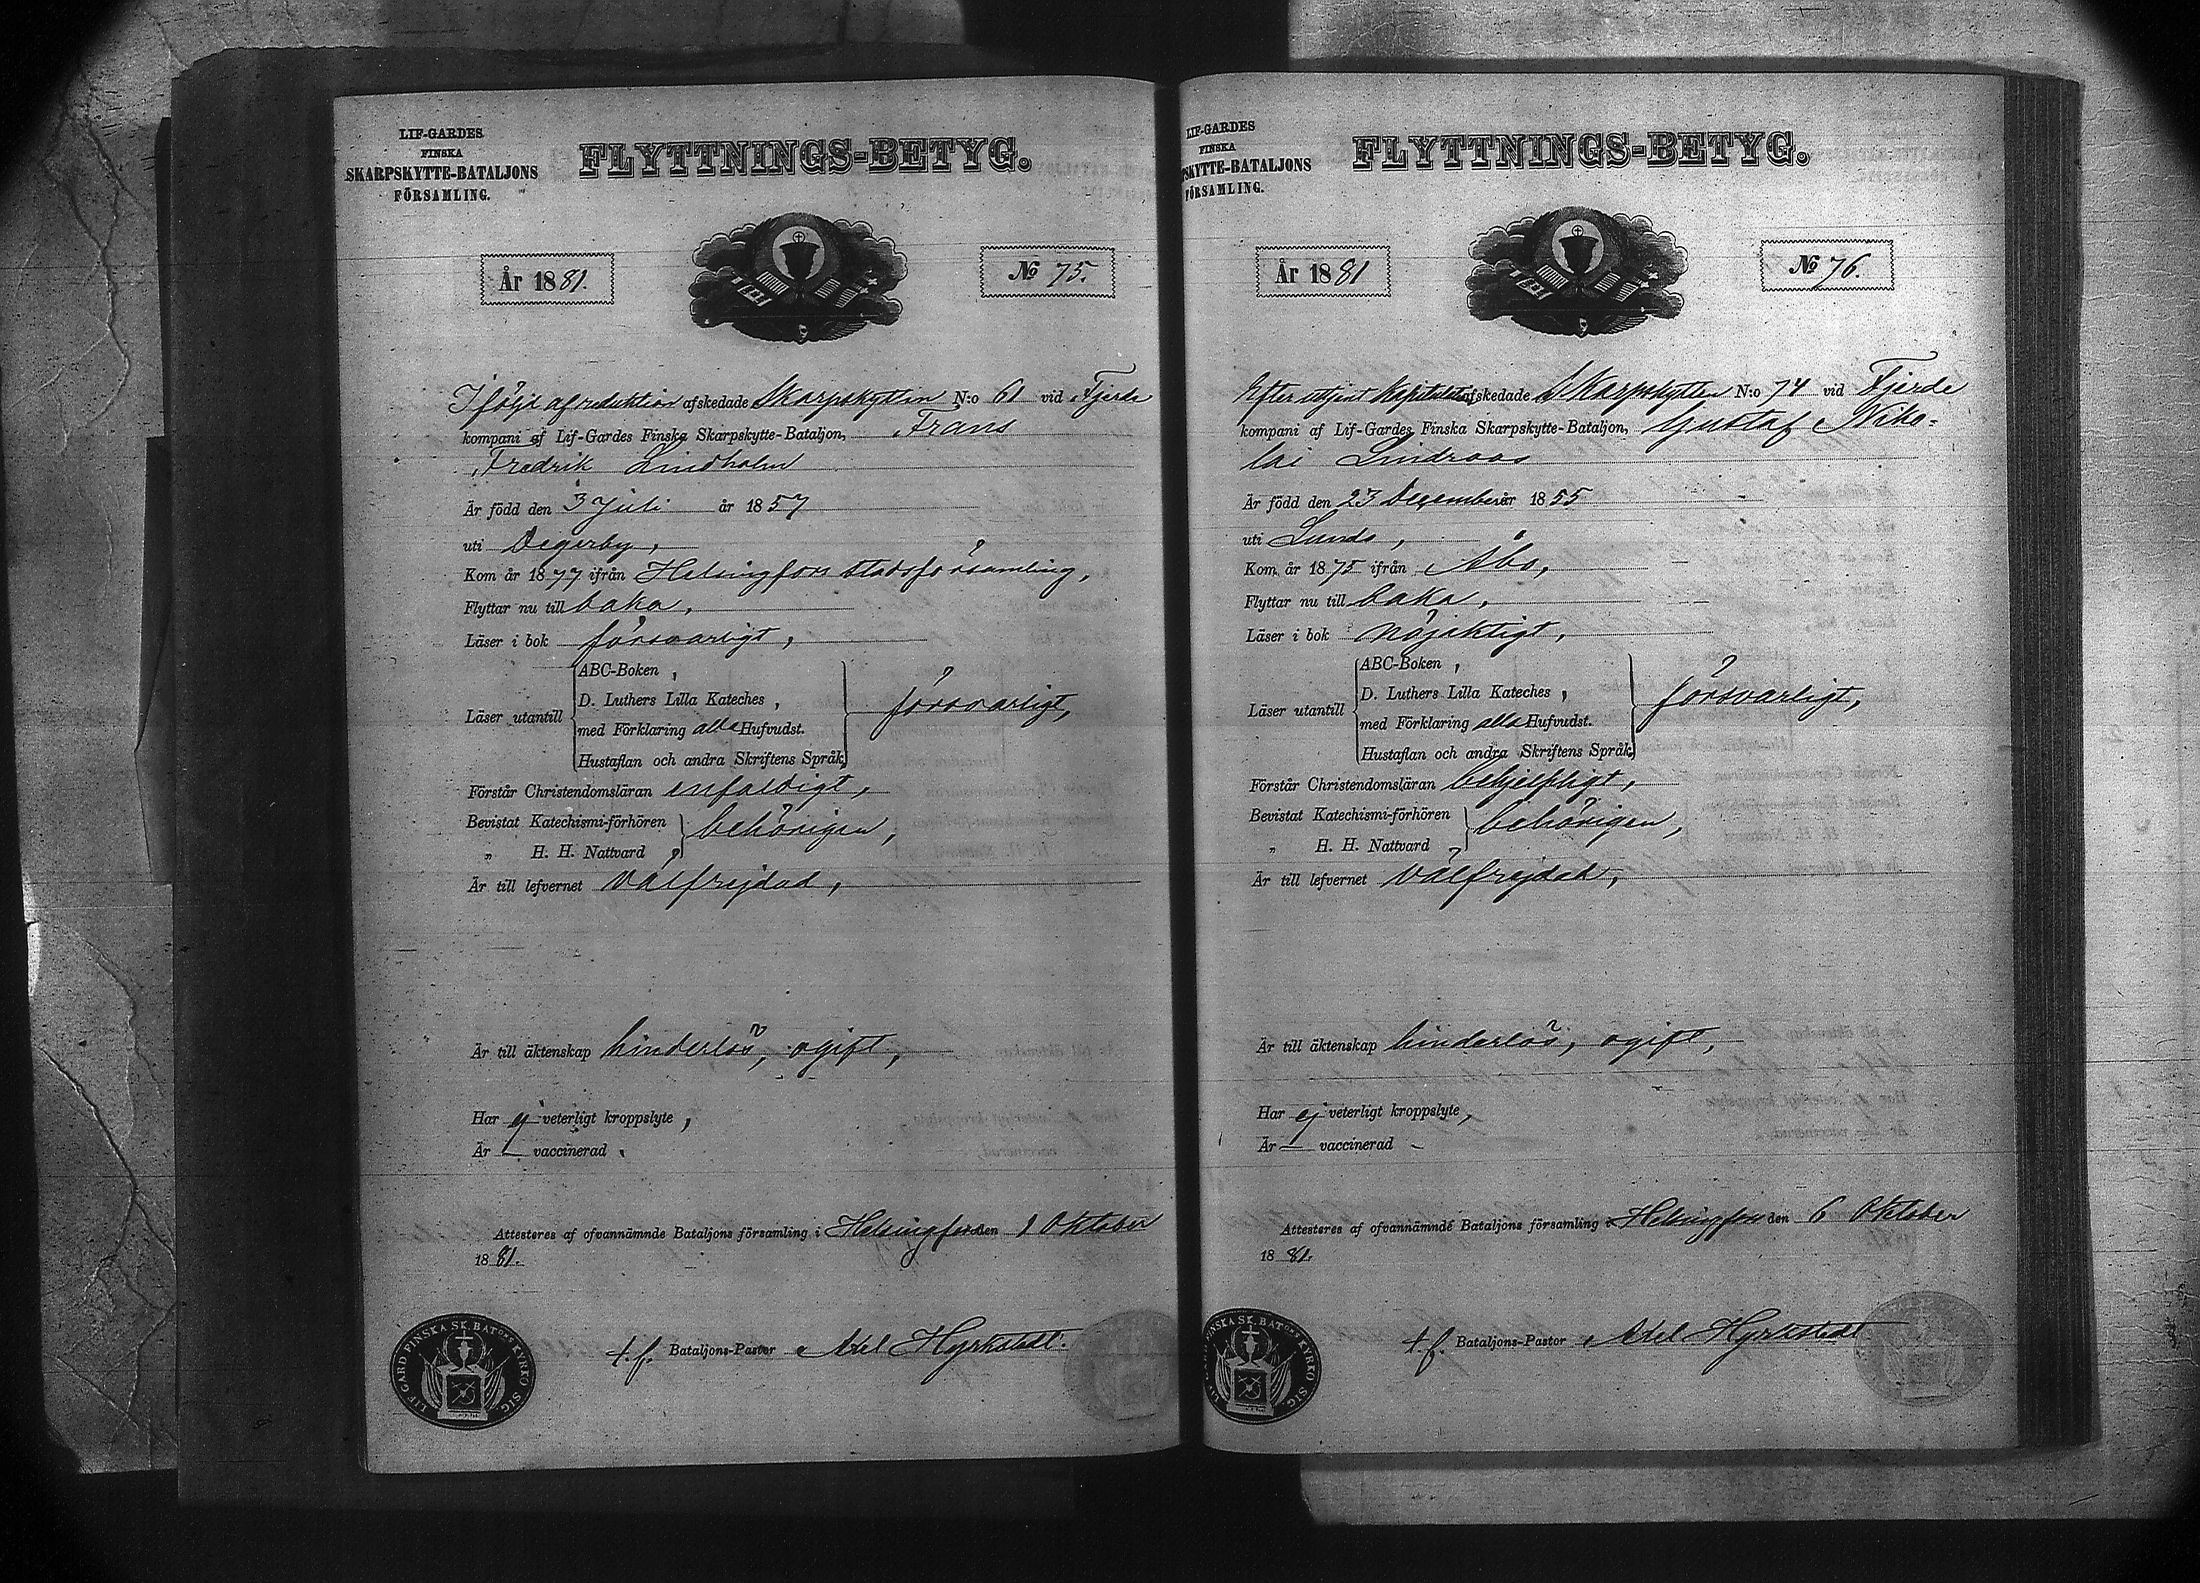 LIF-GARDES
FINSKA
SKARPSKYTTE-BATALJONS
FÖRSAMLING.
FLYTTNINGS-BETYG.
År 1881.
No 75.
I följd af reduktion afskedade Skarpskytten N:o 61 vid Fjerde
kompani af Lif-Gardes Finska Skarpskytte-Bataljon, Frans
Fredrik Lindholm
Är född den 3 Juli år 1857
uti Degerby,
Kom år 1877 ifrån Helsingfors stadsförsamling,
Flyttar nu till baka,
Läser i bok försvarligt,
Läser utantill
ABC-Boken,
D. Luthers Lilla Kateches,
med Förklaring alla Hufvudst.
Hustaflan och andra Skriftens Språk,
försvarligt,
Förstår Christendomsläran enfaldigt,
Bevistat Katechismi-förhören
„ H. H. Nattvard
behörigen,
Är till lefvernet välfrejdad,
Är till äktenskap hinderlös, ogift,
Har ej veterligt kroppslyte,
Är — vaccinerad.
Attesteras af ofvannämnde Bataljons församling i Helsingfors den 1 Oktober
1881.
t.f. Bataljons-Pastor Axel Hyrkstedt.
LIF GARD FINSKA SK. BATONS KYRKO SIG.
LIF-GARDES
FINSKA
PSKYTTE-BATALJONS
FÖRSAMLING.
FLYTTNINGS-BETYG.
År 1881
No 76.
Efter uttjent Kapitulation afskedade Skarpskytten N:o 74 vid Fjerde
kompani af Lif-Gardes Finska Skarpskytte-Bataljon, Gustaf Niko-
lai Lindroos
Är född den 23 December år 1855
uti Lundo,
Kom år 1875 ifrån Åbo,
Flyttar nu till baka,
Läser i bok nöjaktigt,
Läser utantill
ABC-Boken,
D. Luthers Lilla Kateches,
med Förklaring alla Hufvudst.
Hustaflan och andra Skriftens Språk,
försvarligt,
Förstår Christendomsläran behjelpligt,
Bevistat Katechismi-förhören
„ H. H. Nattvard
behörigen,
Är till lefvernet välfrejdad,
Är till äktenskap hinderlös, ogift,
Har ej veterligt kroppslyte,
Är — vaccinerad —
Attesteras af ofvannämnde Bataljons församling i Helsingfors den 6 Oktober
1881.
t.f. Bataljons-Pastor Axel Hyrkstedt
FINSKA SK. BATONS KYRKO SIG.